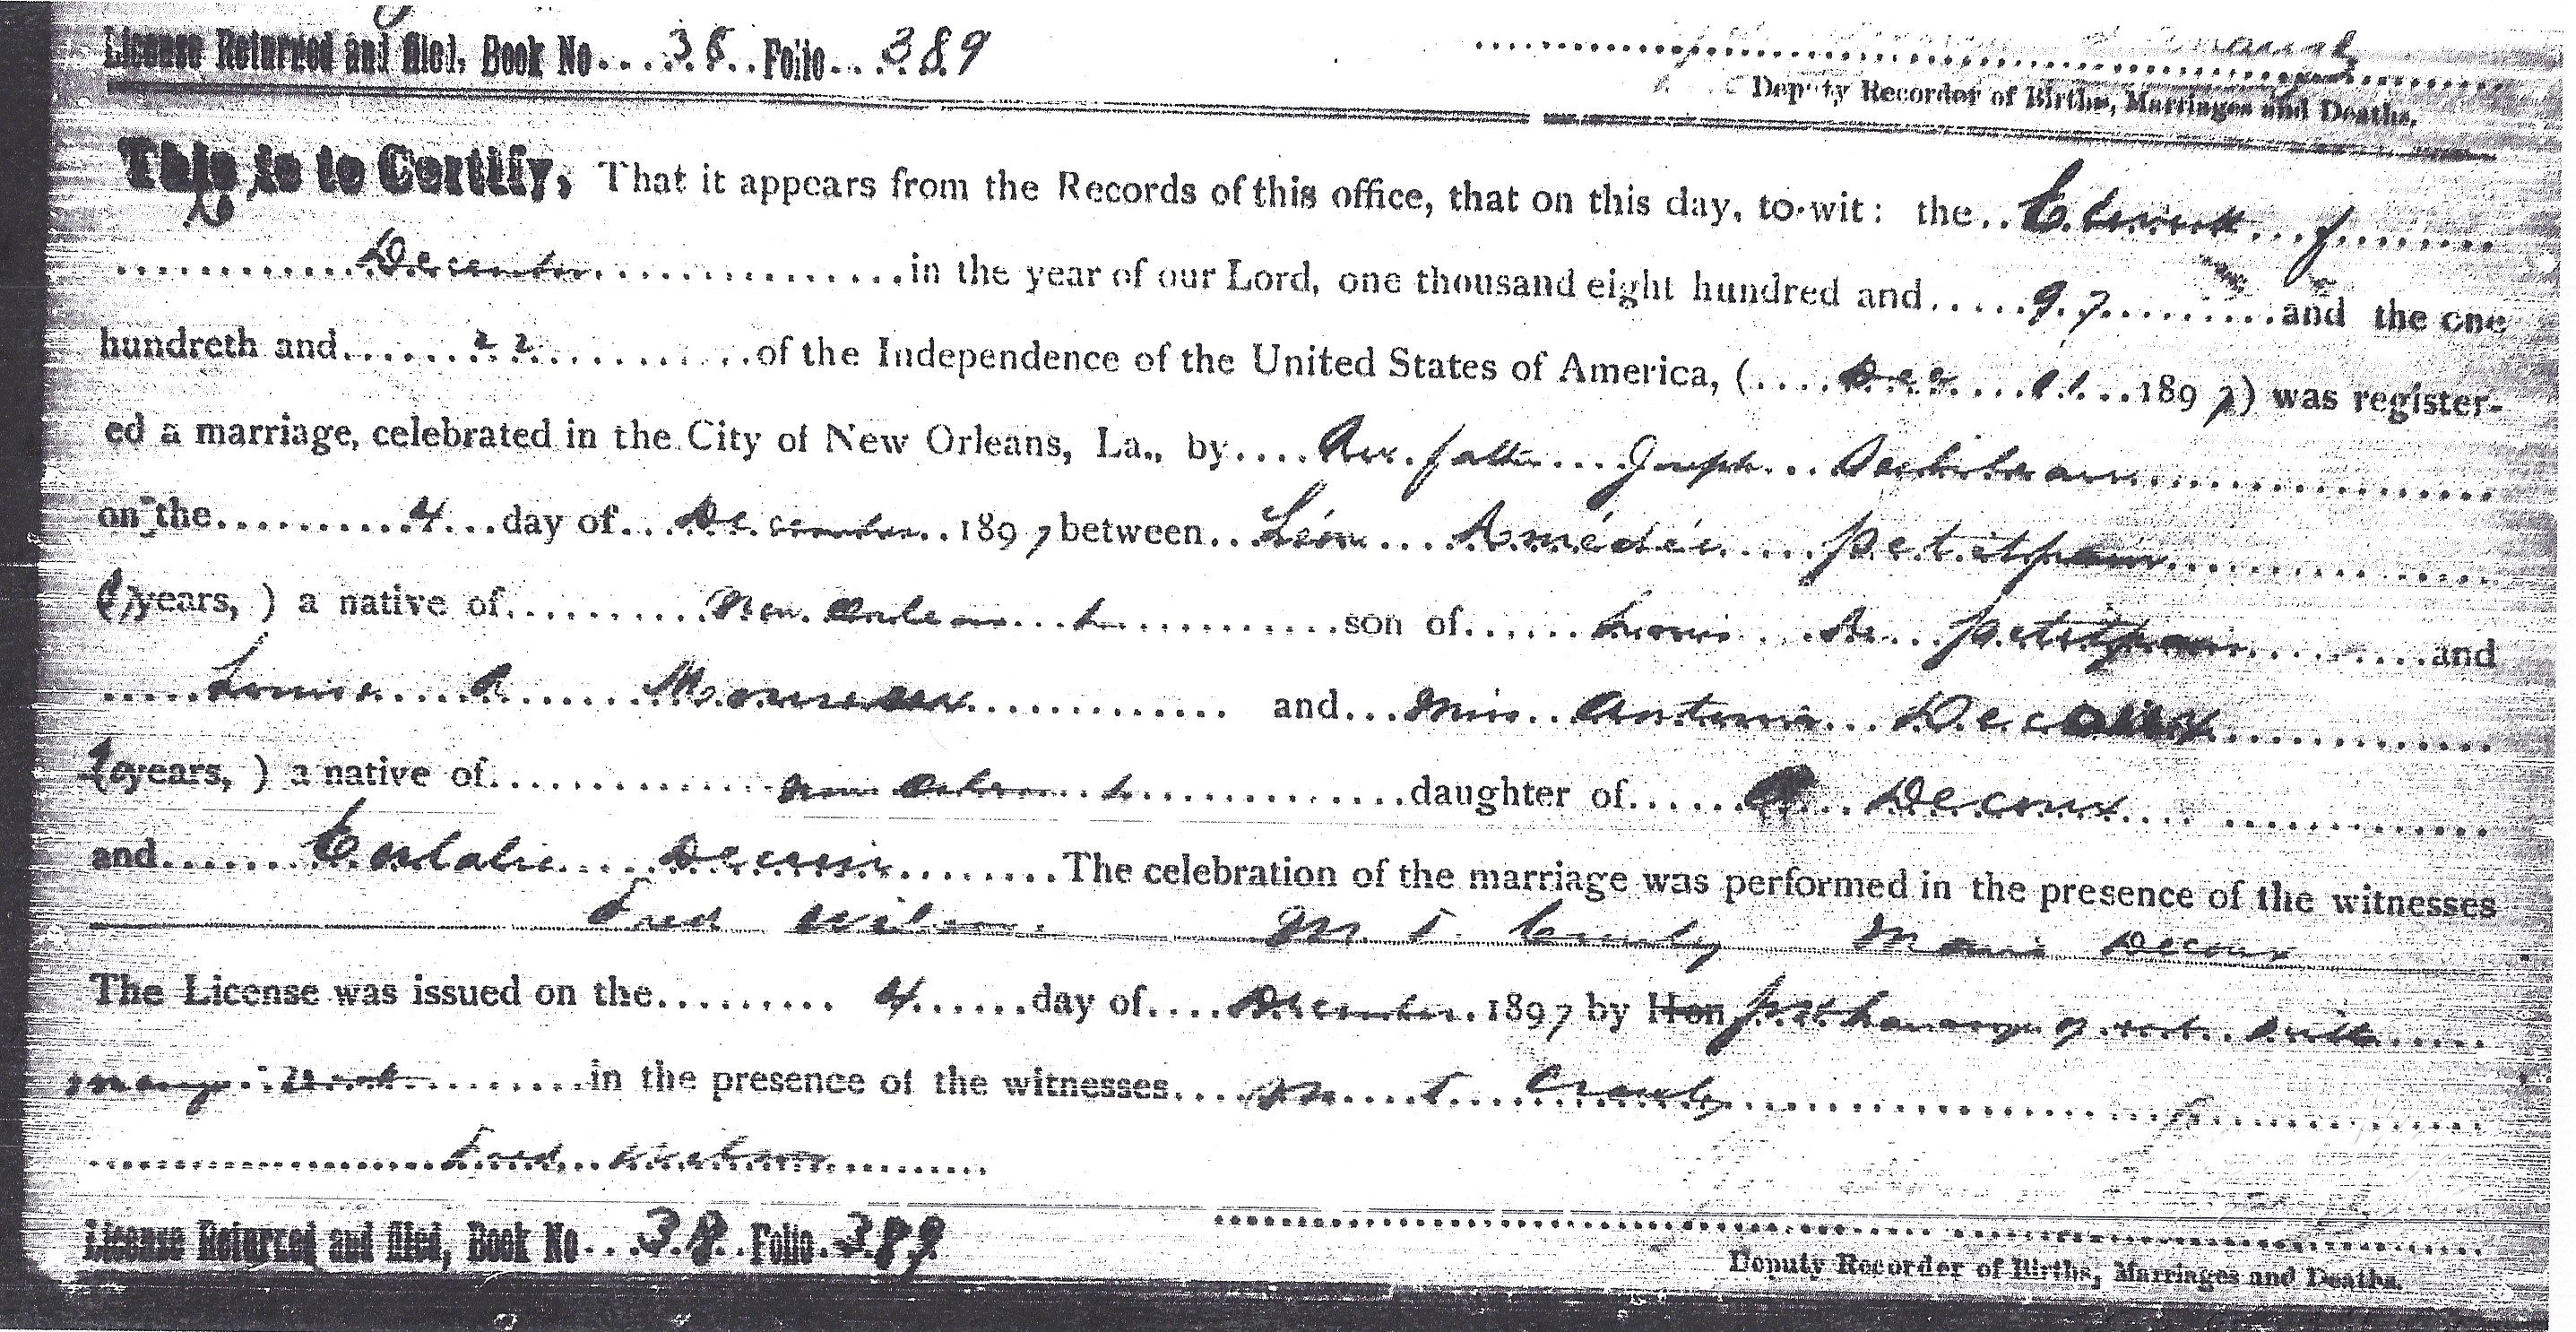 License Returned and filed, Book No.....38..Folio....389
Deputy Recorder of Births, Marriages and Deaths.
This is to Certify, That it appears from the Records of this office, that on this day, to-wit: the..
December in the year of our Lord, one thousand eight hundred and.....97.........and the one
hundreth and.......22...........of the Independence of the United States of America, (....Dec....11..1897) was register-
ed a marriage, celebrated in the City of New Orleans, La., by....Rev. father....Joseph...
on the..........4...day of...December..1897 between..Léon....Amédée....Petitpain
(years, ) a native of.........New Orleans...L............son of......Louis...A...Petitpain..........and
.....Louise....A......and...Miss..Antonia...Decoux
(years, ) a native of...............New Orleans L...............daughter of......A...Decoux
and.......Eulalie....Decuir.........The celebration of the marriage was performed in the presence of the witnesses
Fred Wilson. M. T. Marie Decoux
The License was issued on the......... 4......day of....December.1897 by Hon
in the presence of the witnesses....M....T.....
Fred...Wilson
License Returned and filed, Book No....38..Folio.389
Deputy Recorder of Births, Marriages and Deaths.